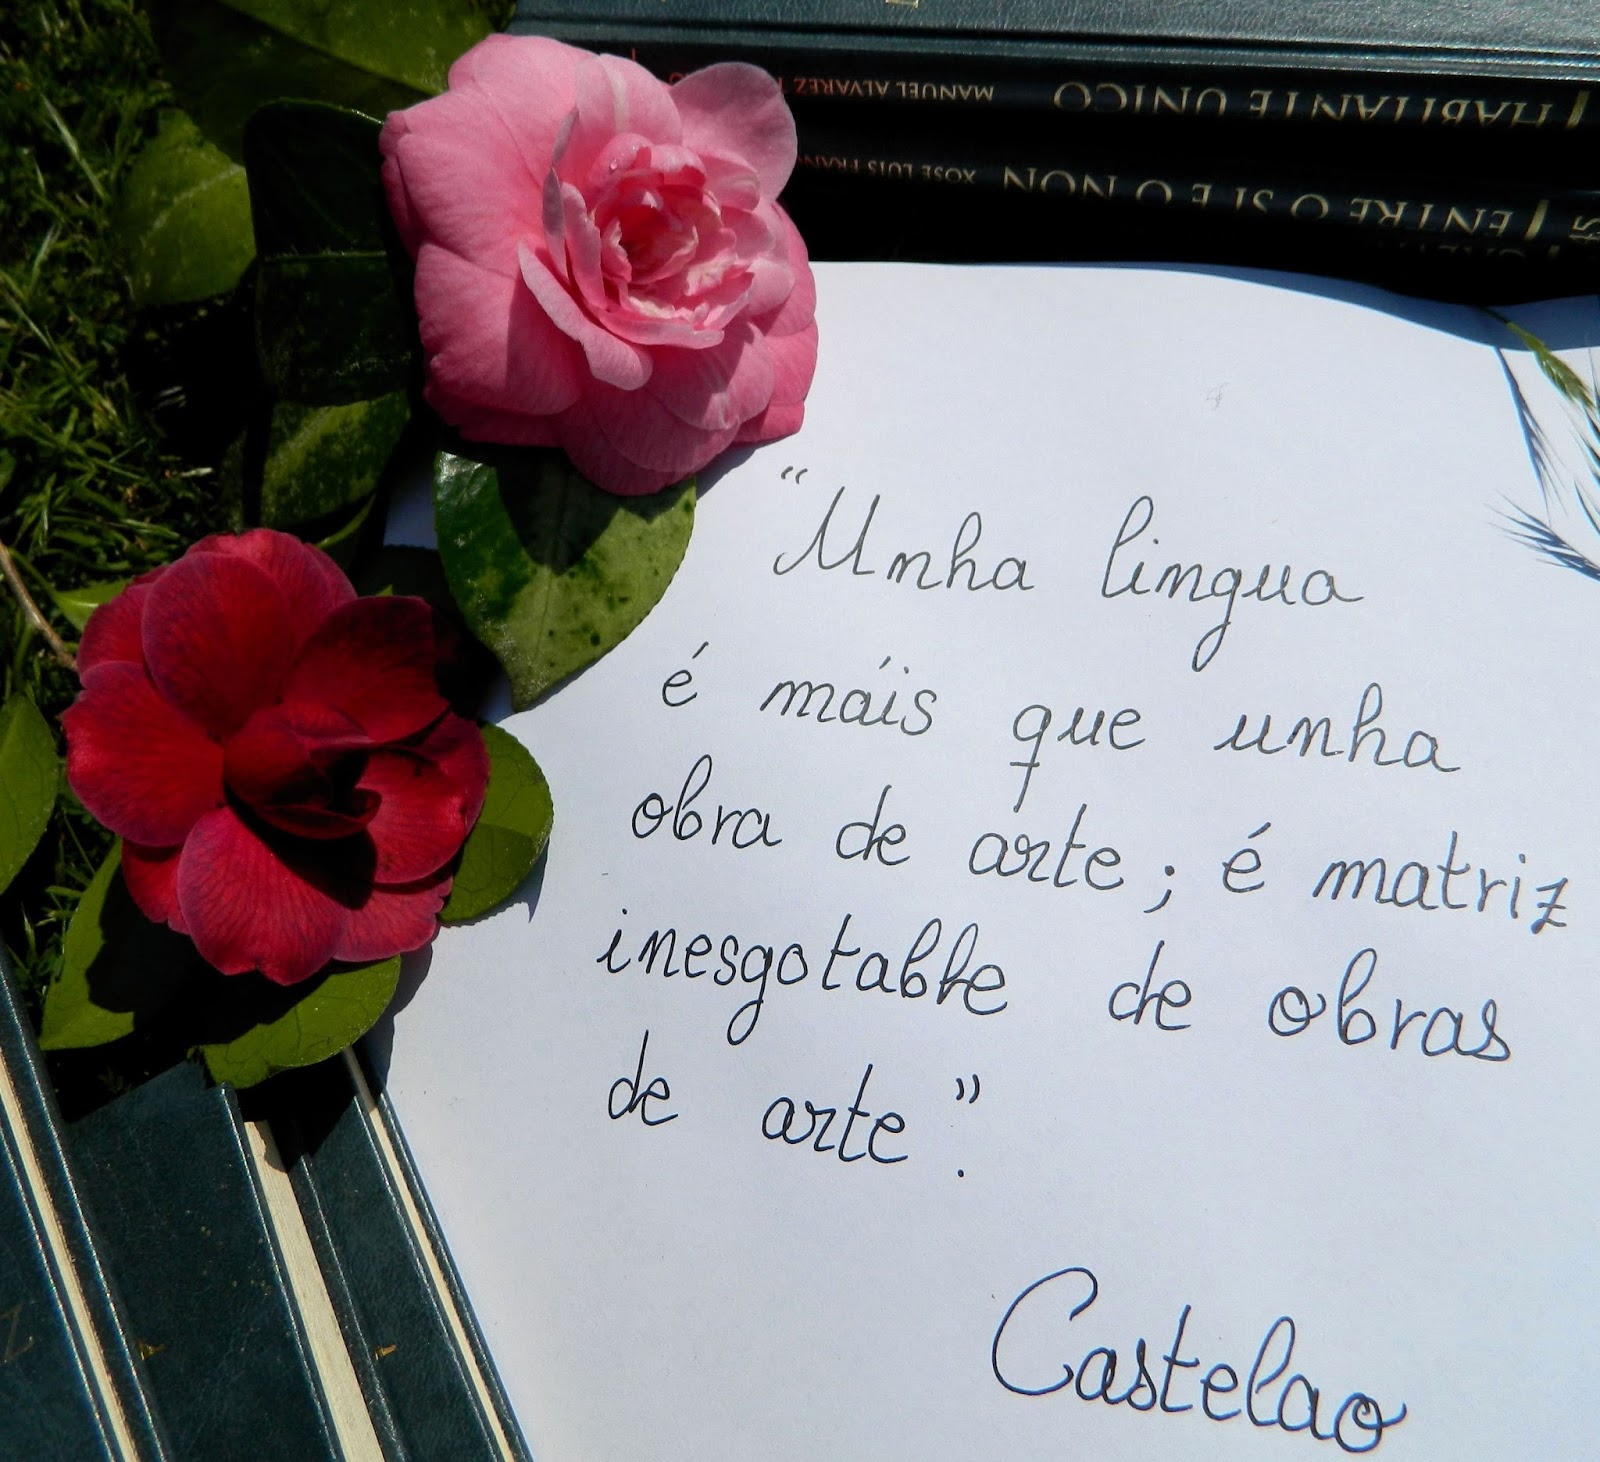 HABITANTE ÚNICO MANUEL ALVAREZ
ENTRE O SI E O NON XOSÉ LUÍS
"Unha lingua
é máis que unha
obra de arte; é matriz
inesgotable de obras
de arte".
Castelao